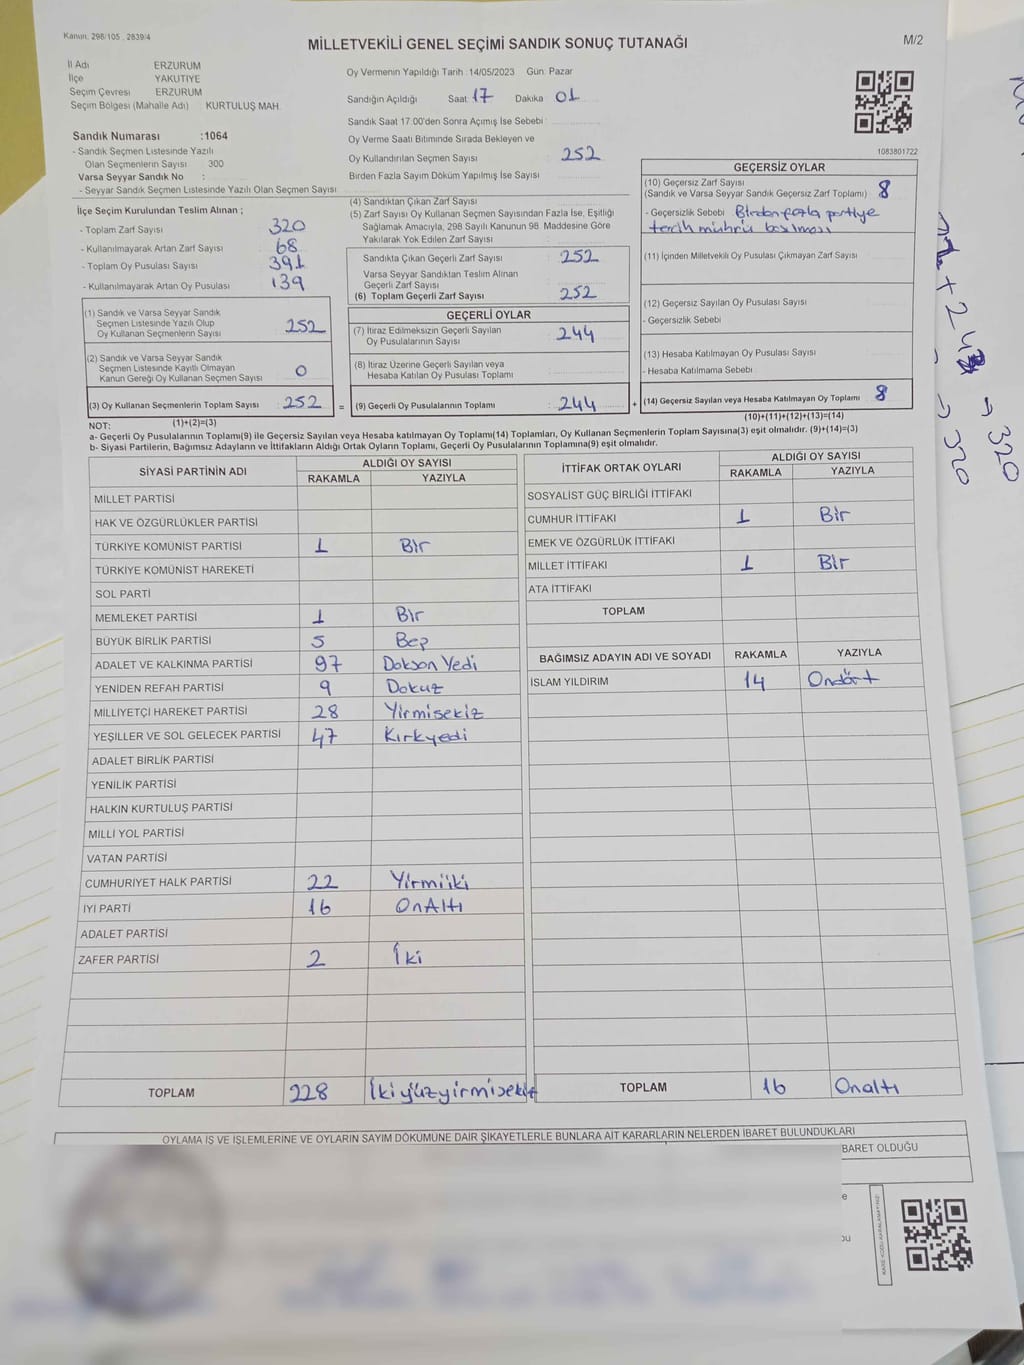 Kanun: 298/105 , 2839/4
MİLLETVEKİLİ GENEL SEÇİMİ SANDIK SONUÇ TUTANAĞI
M/2
İl Adı ERZURUM
İlçe YAKUTİYE
Seçim Çevresi ERZURUM
Seçim Bölgesi (Mahalle Adı) KURTULUŞ MAH.
Sandık Numarası :1064
- Sandık Seçmen Listesinde Yazılı
Olan Seçmenlerin Sayısı : 300
Varsa Seyyar Sandık No :
- Seyyar Sandık Seçmen Listesinde Yazılı Olan Seçmen Sayısı
Oy Vermenin Yapıldığı Tarih :14/05/2023 Gün: Pazar
Sandığın Açıldığı Saat: 17 Dakika 01
Sandık Saat 17.00'den Sonra Açımış İse Sebebi :
Oy Verme Saati Bitiminde Sırada Bekleyen ve
Oy Kullandırılan Seçmen Sayısı 252
Birden Fazla Sayım Döküm Yapılmış İse Sayısı
1083801722
İlçe Seçim Kurulundan Teslim Alınan ;
- Toplam Zarf Sayısı 320
- Kullanılmayarak Artan Zarf Sayısı 68
- Toplam Oy Pusulası Sayısı 391
- Kullanılmayarak Artan Oy Pusulası 139
(1) Sandık ve Varsa Seyyar Sandık
Seçmen Listesinde Yazılı Olup
Oy Kullanan Seçmenlerin Sayısı 252
(2) Sandık ve Varsa Seyyar Sandık
Seçmen Listesinde Kayıtlı Olmayan
Kanun Gereği Oy Kullanan Seçmen Sayısı 0
(3) Oy Kullanan Seçmenlerin Toplam Sayısı : 252 =
(4) Sandıktan Çıkan Zarf Sayısı
(5) Zarf Sayısı Oy Kullanan Seçmen Sayısından Fazla İse, Eşitliği
Sağlamak Amacıyla, 298 Sayılı Kanunun 98. Maddesine Göre
Yakılarak Yok Edilen Zarf Sayısı
Sandıkta Çıkan Geçerli Zarf Sayısı 252
Varsa Seyyar Sandıktan Teslim Alınan
Geçerli Zarf Sayısı
(6) Toplam Geçerli Zarf Sayısı 252
GEÇERLİ OYLAR
(7) İtiraz Edilmeksizin Geçerli Sayılan
Oy Pusulalarının Sayısı 244
(8) İtiraz Üzerine Geçerli Sayılan veya
Hesaba Katılan Oy Pusulası Toplamı
(9) Geçerli Oy Pusulalarının Toplamı : 244 +
GEÇERSİZ OYLAR
(10) Geçersiz Zarf Sayısı
(Sandık ve Varsa Seyyar Sandık Geçersiz Zarf Toplamı) 8
- Geçersizlik Sebebi Birden fazla partiye
tercih mührü basılması
(11) İçinden Milletvekili Oy Pusulası Çıkmayan Zarf Sayısı
(12) Geçersiz Sayılan Oy Pusulası Sayısı
- Geçersizlik Sebebi
(13) Hesaba Katılmayan Oy Pusulası Sayısı
- Hesaba Katılmama Sebebi
(14) Geçersiz Sayılan veya Hesaba Katılmayan Oy Toplamı 8
NOT: (1)+(2)=(3)
(10)+(11)+(12)+(13)=(14)
a- Geçerli Oy Pusulalarının Toplamı(9) ile Geçersiz Sayılan veya Hesaba katılmayan Oy Toplamı(14) Toplamları, Oy Kullanan Seçmenlerin Toplam Sayısına(3) eşit olmalıdır. (9)+(14)=(3)
b- Siyasi Partilerin, Bağımsız Adayların ve İttifakların Aldığı Ortak Oyların Toplamı, Geçerli Oy Pusulalarının Toplamına(9) eşit olmalıdır.
SİYASİ PARTİNİN ADI ALDIĞI OY SAYISI
RAKAMLA YAZIYLA
MİLLET PARTİSİ
HAK VE ÖZGÜRLÜKLER PARTİSİ
TÜRKİYE KOMÜNİST PARTİSİ 1 Bir
TÜRKİYE KOMÜNİST HAREKETİ
SOL PARTİ
MEMLEKET PARTİSİ 1 Bir
BÜYÜK BİRLİK PARTİSİ 5 Beş
ADALET VE KALKINMA PARTİSİ 97 Doksan Yedi
YENİDEN REFAH PARTİSİ 9 Dokuz
MİLLİYETÇİ HAREKET PARTİSİ 28 Yirmisekiz
YEŞİLLER VE SOL GELECEK PARTİSİ 47 Kırkyedi
ADALET BİRLİK PARTİSİ
YENİLİK PARTİSİ
HALKIN KURTULUŞ PARTİSİ
MİLLİ YOL PARTİSİ
VATAN PARTİSİ
CUMHURİYET HALK PARTİSİ 22 Yirmiiki
İYİ PARTİ 16 OnAltı
ADALET PARTİSİ
ZAFER PARTİSİ 2 İki
TOPLAM 228 İkiyüzyirmisekiz
İTTİFAK ORTAK OYLARI ALDIĞI OY SAYISI
RAKAMLA YAZIYLA
SOSYALİST GÜÇ BİRLİĞİ İTTİFAKI
CUMHUR İTTİFAKI 1 Bir
EMEK VE ÖZGÜRLÜK İTTİFAKI
MİLLET İTTİFAKI 1 Bir
ATA İTTİFAKI
TOPLAM
BAĞIMSIZ ADAYIN ADI VE SOYADI RAKAMLA YAZIYLA
İSLAM YILDIRIM 14 Ondört
TOPLAM 16 Onaltı
OYLAMA İŞ VE İŞLEMLERİNE VE OYLARIN SAYIM DÖKÜMÜNE DAİR ŞİKAYETLERLE BUNLARA AİT KARARLARIN NELERDEN İBARET BULUNDUKLARI
BARET OLDUĞU
→ 320
→ 320